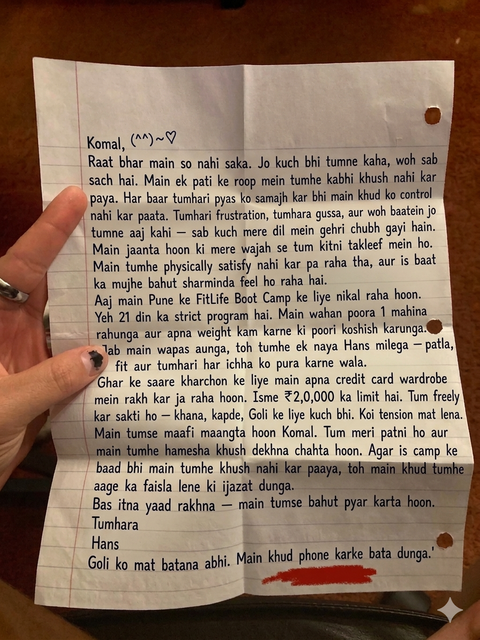 Komal, (^^)~♡
Raat bhar main so nahi saka. Jo kuch bhi tumne kaha, woh sab
sach hai. Main ek pati ke roop mein tumhe kabhi khush nahi kar
paya. Har baar tumhari pyas ko samajh kar bhi main khud ko control
nahi kar paata. Tumhari frustration, tumhara gussa, aur woh baatein jo
tumne aaj kahi — sab kuch mere dil mein gehri chubh gayi hain.
Main jaanta hoon ki mere wajah se tum kitni takleef mein ho.
Main tumhe physically satisfy nahi kar pa raha tha, aur is baat
ka mujhe bahut sharminda feel ho raha hai.
Aaj main Pune ke FitLife Boot Camp ke liye nikal raha hoon.
Yeh 21 din ka strict program hai. Main wahan poora 1 mahina
rahunga aur apna weight kam karne ki poori koshish karunga.
Jab main wapas aunga, toh tumhe ek naya Hans milega — patla,
fit aur tumhari har ichha ko pura karne wala.
Ghar ke saare kharchon ke liye main apna credit card wardrobe
mein rakh kar ja raha hoon. Isme ₹2,0,000 ka limit hai. Tum freely
kar sakti ho — khana, kapde, Goli ke liye kuch bhi. Koi tension mat lena.
Main tumse maafi maangta hoon Komal. Tum meri patni ho aur
main tumhe hamesha khush dekhna chahta hoon. Agar is camp ke
baad bhi main tumhe khush nahi kar paaya, toh main khud tumhe
aage ka faisla lene ki ijazat dunga.
Bas itna yaad rakhna — main tumse bahut pyar karta hoon.
Tumhara
Hans
Goli ko mat batana abhi. Main khud phone karke bata dunga.'